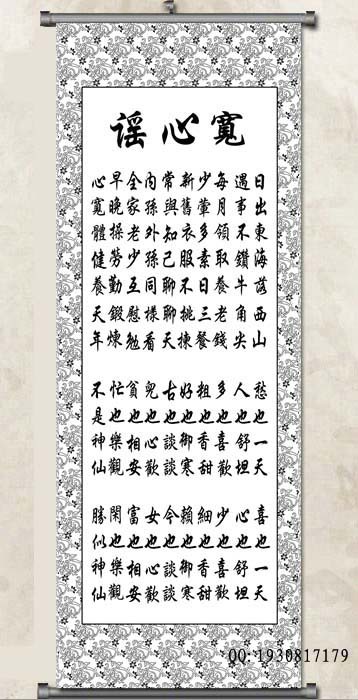 寬心謡
日出東海落西山
遇事不鑽牛角尖
每月領取養老錢
少葷多素日三餐
新舊衣服不挑揀
常與知己聊聊天
內孫外孫同樣看
全家老少互慰勉
早晚操勞勤鍛煉
心寬體健養天年
愁也一天
人也舒坦
多也喜歡
粗也香甜
好也御寒
古也談談
兒也心歡
貧也相安
忙也樂觀
不是神仙
喜也一天
心也舒坦
少也喜歡
細也香甜
賴也御寒
今也談談
女也心歡
富也相安
閑也樂觀
勝似神仙
QQ:1930817179